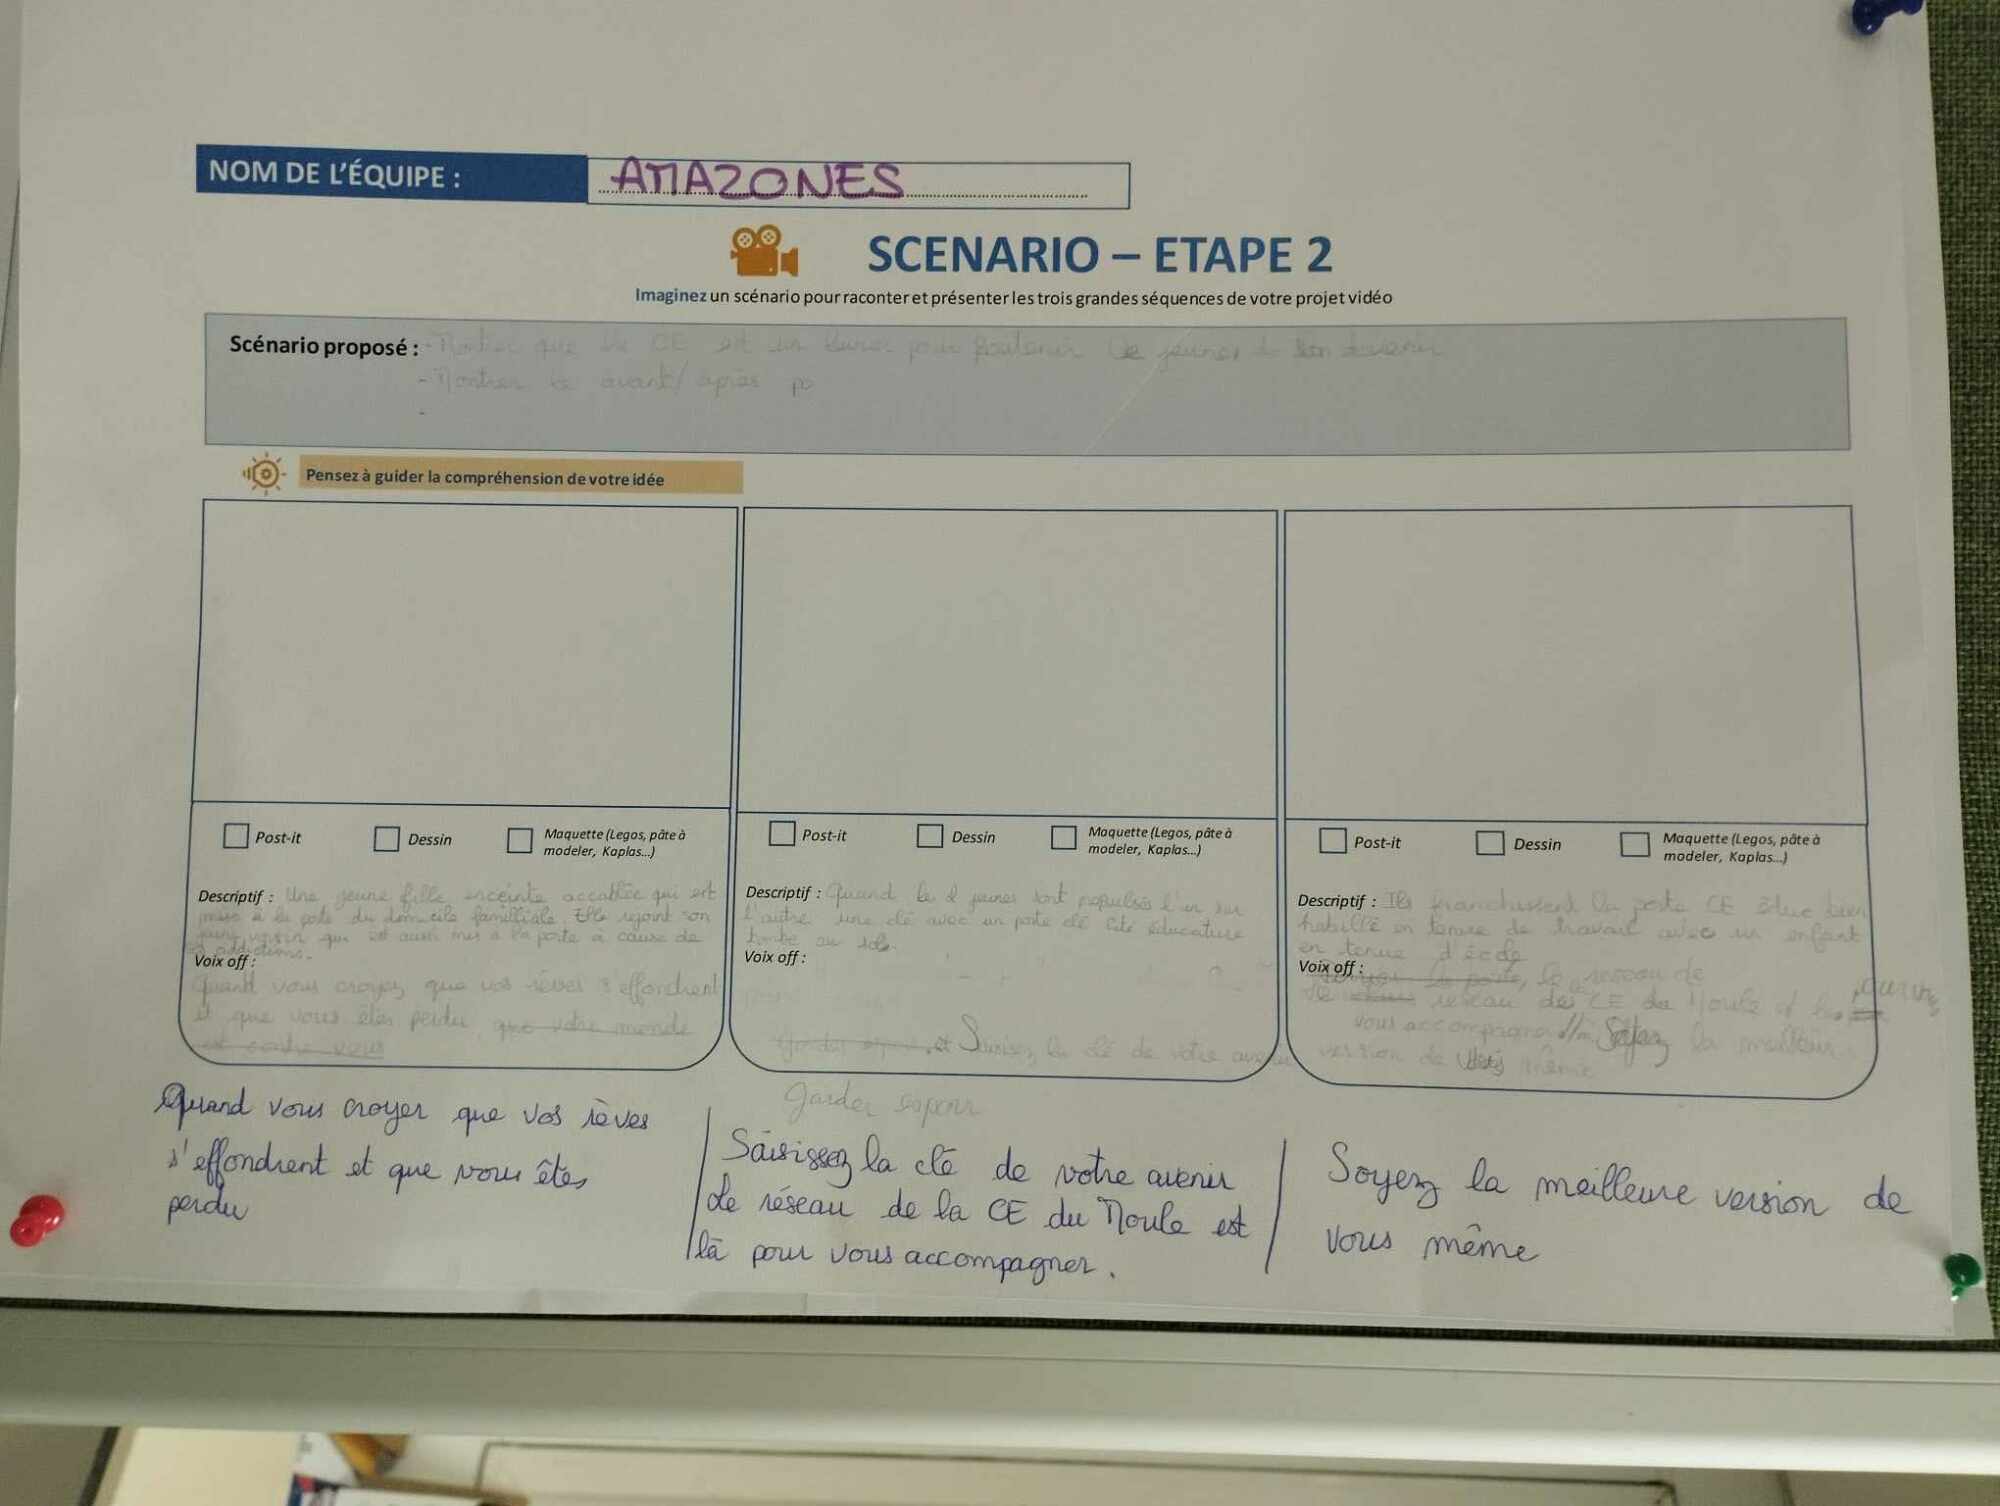 NOM DE L'ÉQUIPE : AMAZONES
SCENARIO – ETAPE 2
Imaginez un scénario pour raconter et présenter les trois grandes séquences de votre projet vidéo
Scénario proposé : - Montrer que la CE est un pour soutenir le jeunes de son avenir
- Montrer le avant/après po
-
Pensez à guider la compréhension de votre idée
Post-it Dessin Maquette (Legos, pâte à
modeler, Kaplas...)
Descriptif : Une jeune fille enceinte accablée qui est
mise à la porte du domicile familliale. Elle rejoint son
jeune voisin qui est aussi mis à la porte à cause de
addictions.
Voix off :
Quand vous croyez que vos rêves s'effondrent
et que vous êtes perdu que votre monde
est contre vous
Post-it Dessin Maquette (Legos, pâte à
modeler, Kaplas...)
Descriptif : Quand le 2 jeunes sont l'un sur
l'autre une clé avec un porte clé Cité éducative
tombe au sol.
Voix off :
et Saisissez la clé de votre avenir
Garder espoir
Post-it Dessin Maquette (Legos, pâte à
modeler, Kaplas...)
Descriptif : Ils franchissent la porte CE bien
habillé en tenue de travail avec un enfant
en tenue d'école
Voix off : la porte, le reseau de
reseau de CE du Moule
vous accompagne Soyez la meilleur
version de même
Quand vous croyer que vos rêves
s'effondrent et que vous êtes
perdu
Saisissez la clé de votre avenir
Le réseau de la CE du Moule est
là pour vous accompagner.
Soyez la meilleure version de
vous même